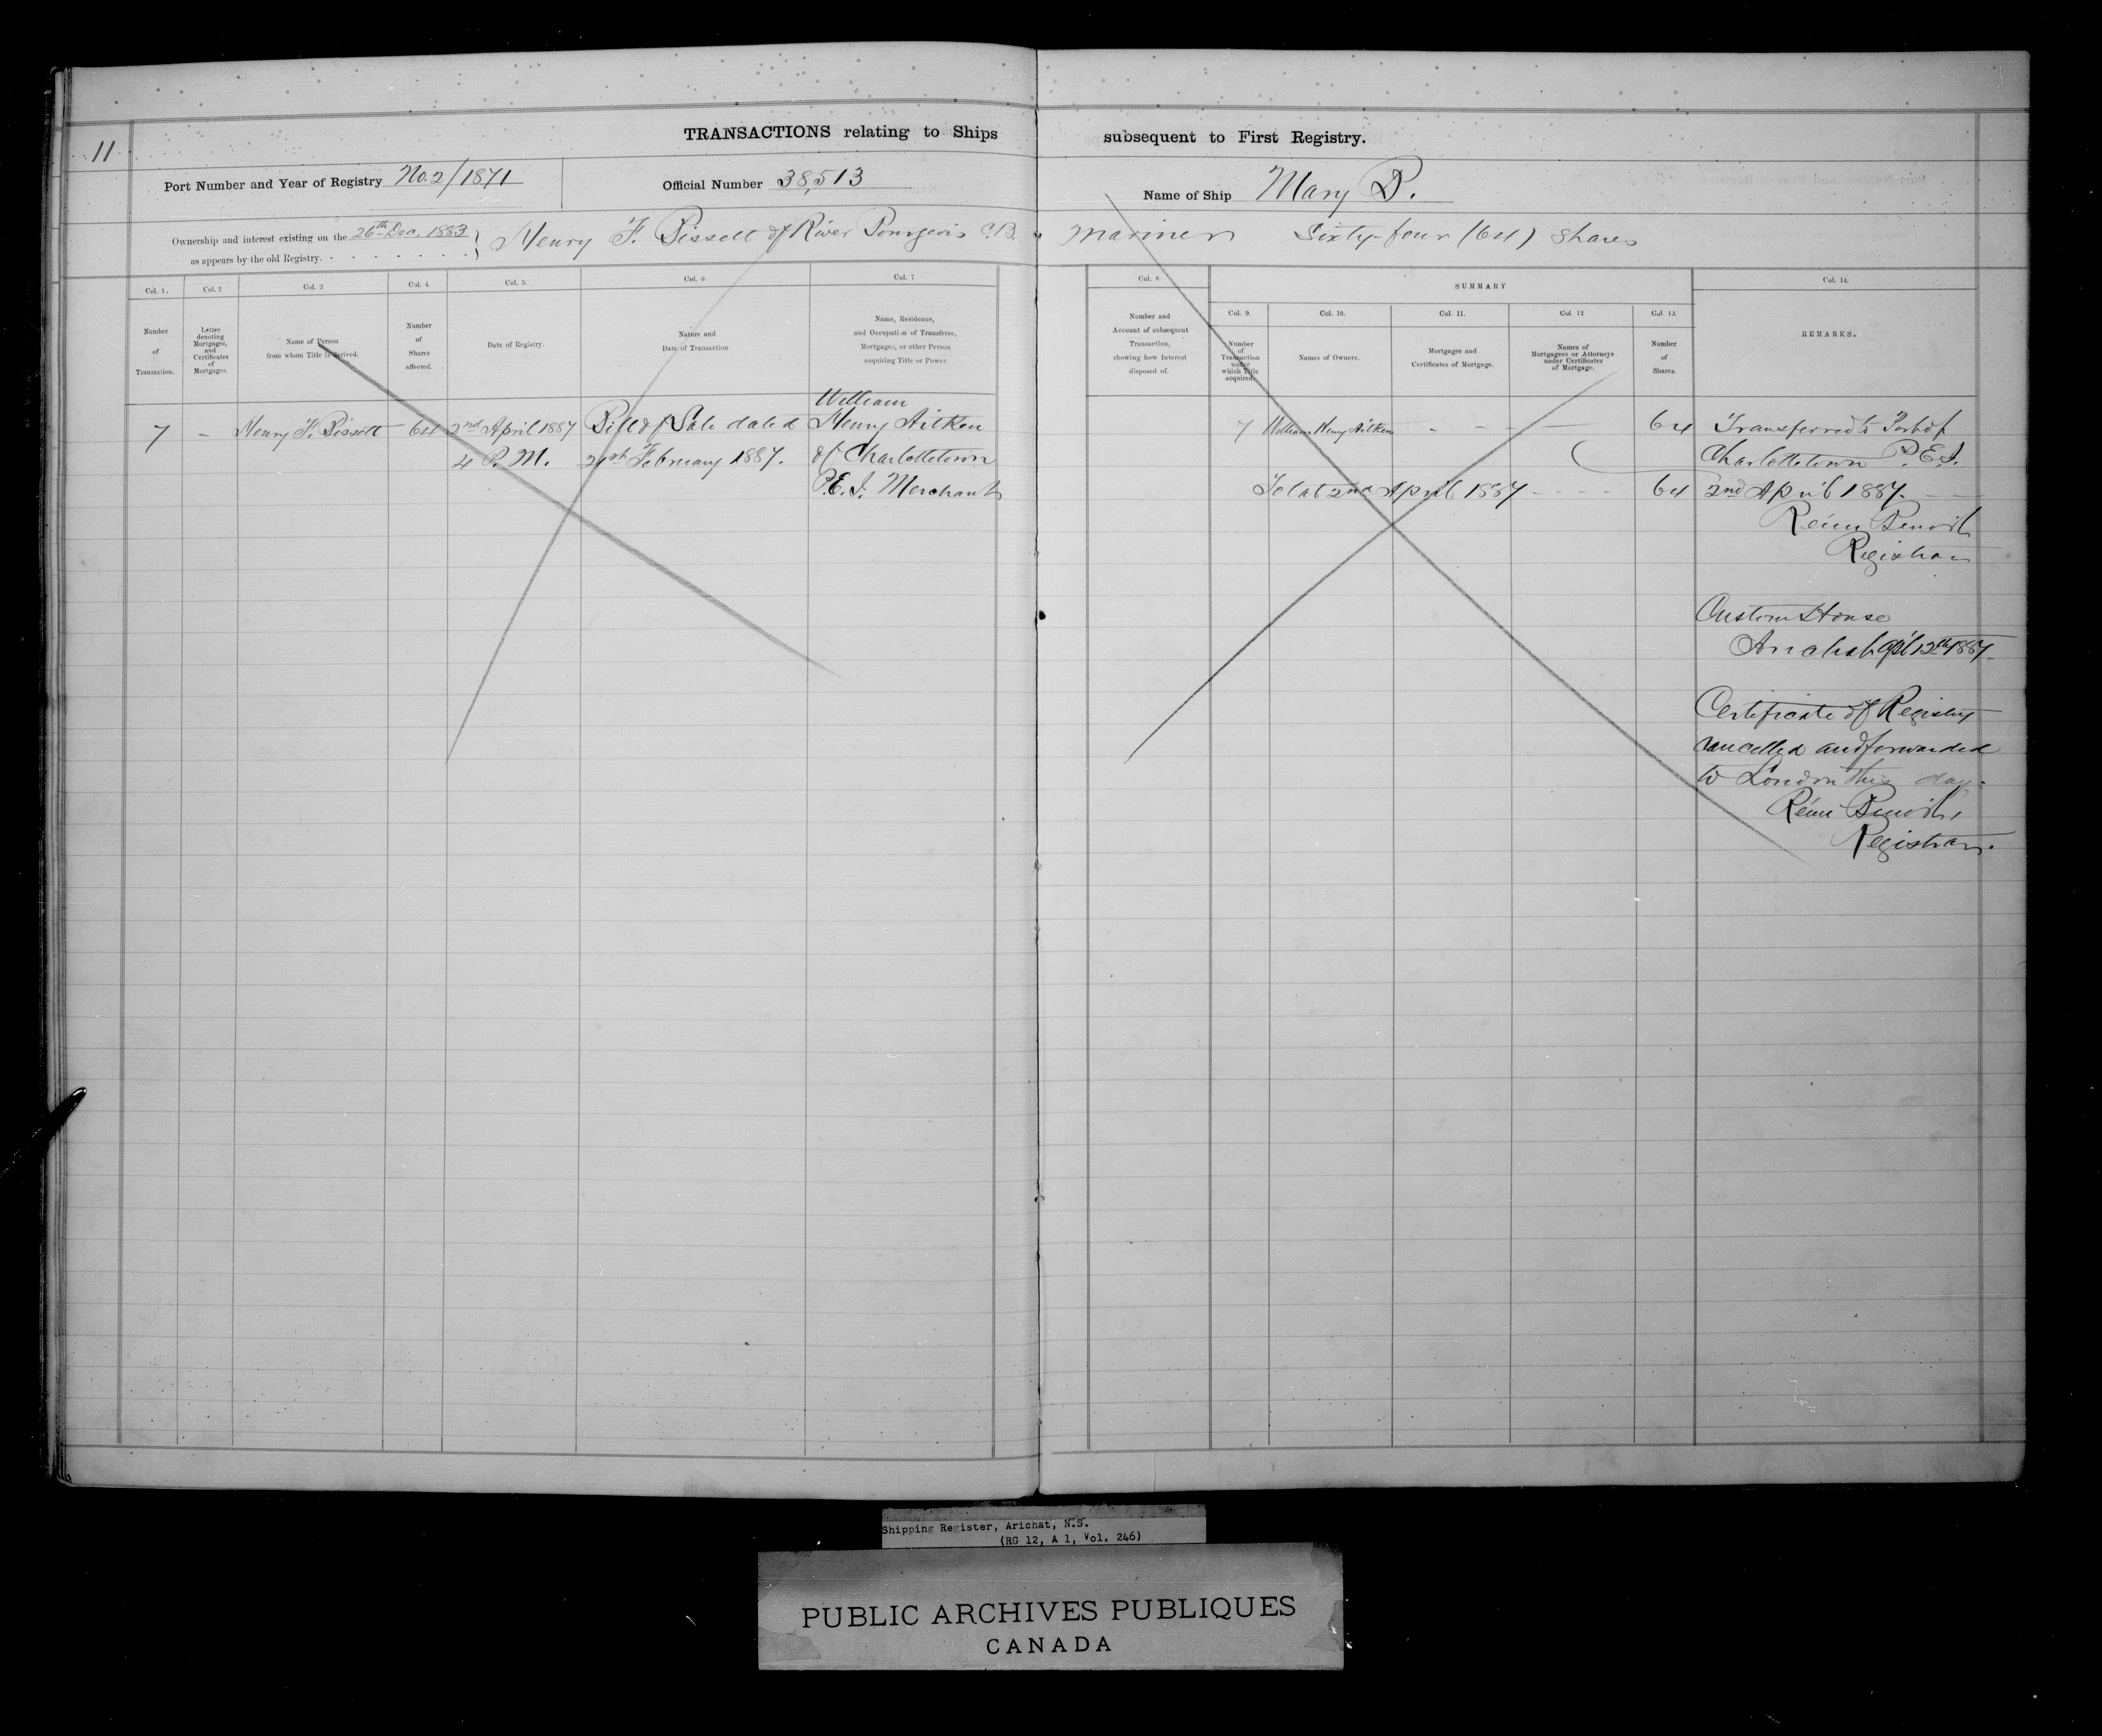 11
TRANSACTIONS relating to Ships subsequent to First Registry.
Port Number and Year of Registry No. 2/1871 Official Number 38,513 Name of Ship Mary B.
Ownership and interest existing on the 26th Dec. 1883 } Henry F. Bissett of River Bourgeois C.B. mariner Sixty-four (64) shares
as appears by the old Registry.
Col. 1.
Number
of
Transaction.
Col. 2
Letter
denoting
Mortgages,
and
Certificates
of
Mortgages.
Col. 3
Name of Person
from whom Title is derived.
Col. 4.
Number
of
Shares
affected.
Col. 5.
Date of Registry.
Col. 6
Nature and
Date of Transaction.
Col. 7
Name, Residence,
and Occupation of Transferee,
Mortgagee, or other Person
acquiring Title or Power.
Col. 8.
Number and
Account of subsequent
Transaction,
showing how Interest
disposed of.
SUMMARY
Col. 9.
Number
of
Transaction
under
which Title
acquired.
Col. 10.
Names of Owners.
Col. 11.
Mortgages and
Certificates of Mortgage.
Col. 12
Names of
Mortgagees or Attorneys
under Certificates
of Mortgage.
Col. 13.
Number
of
Shares.
Col. 14.
REMARKS.
7 - Henry F. Bissett 64
2nd April 1887
4 P.M.
Bill of Sale dated
February 1887.
William
Henry Aitken
of Charlottetown
P.E.I. Merchant
7 William Henry Aitken - - - 64
Total 2nd April 1887 - - - - 64
Transferred to Port of
Charlottetown P.E.I.
2nd April 1887.
Rémi Benoit
Registrar
Custom House
Arichat Apl 12th 1887
Certificate of Registry
cancelled and forwarded
to London this day.
Rémi Benoit,
Registrar.
Shipping Register, Arichat, N.S.
(RG 12, A 1, Vol. 246)
PUBLIC ARCHIVES PUBLIQUES
CANADA